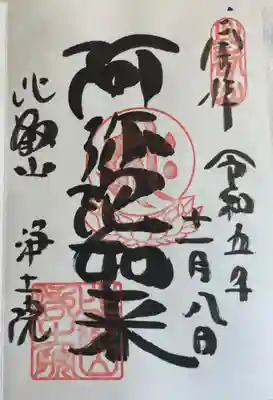 奉拝
令和五年
十一月八日
阿弥陀如来
比叡山
浄土院